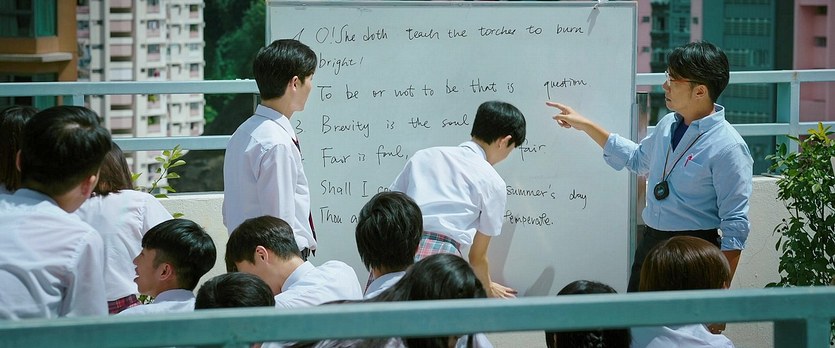 1 O! She doth teach the torches to burn
bright!
To be or not to be that is question
3 Brevity is the soul
Fair is foul, fair
Shall I summer's day
Thou temperate.